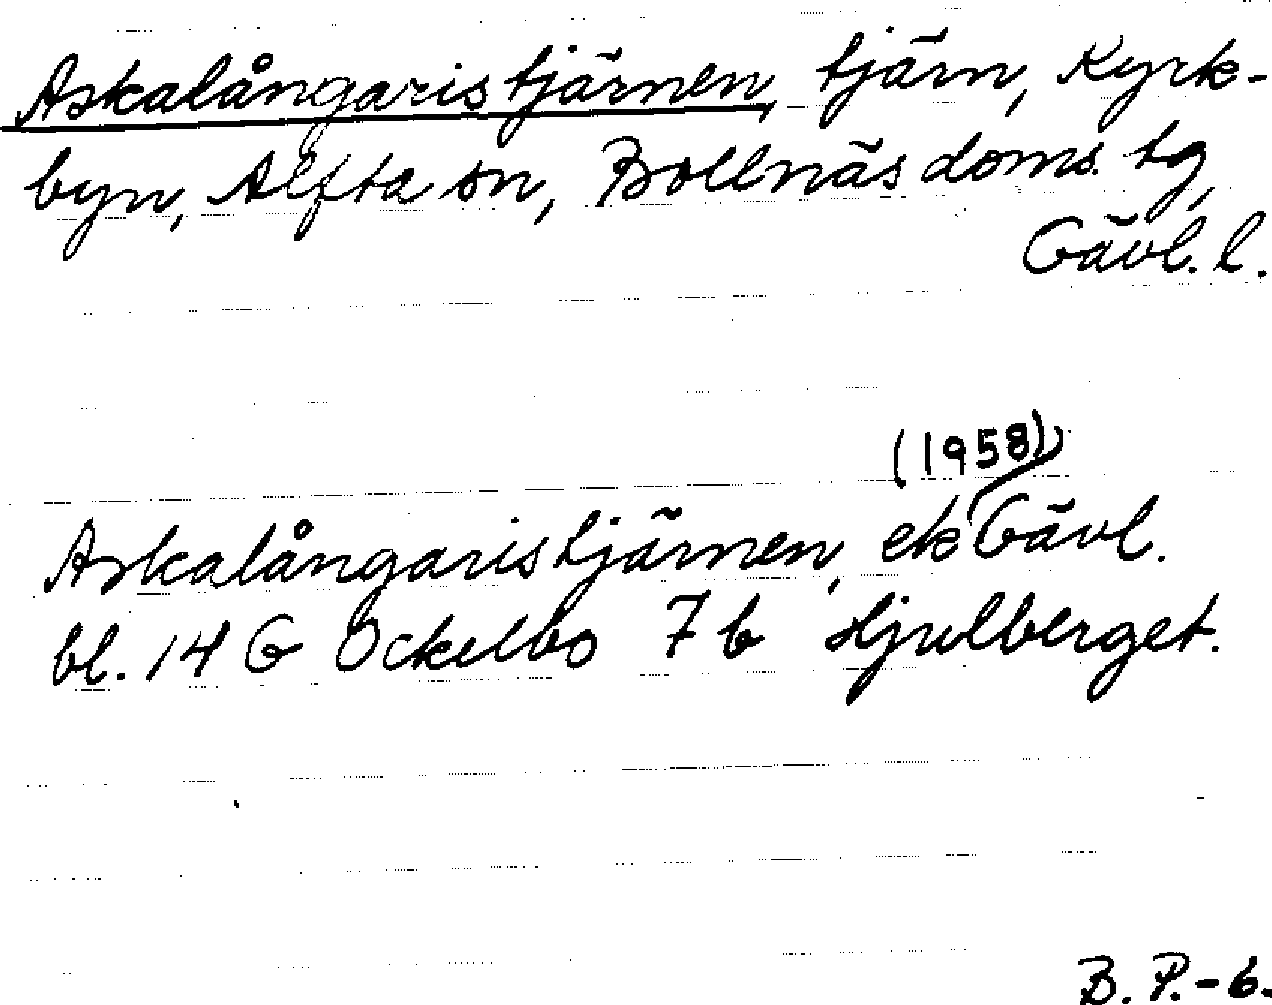 Askalångaristjärnen, tjärn, Kyrk-
byn, Alfta sn, Bollnäs doms. tg,
Gävl. l.
(1958)
Askalångaristjärnen, ek Gävl.
bl. 14 G Ockelbo 7 b Hjulberget.
B. P. - 6.